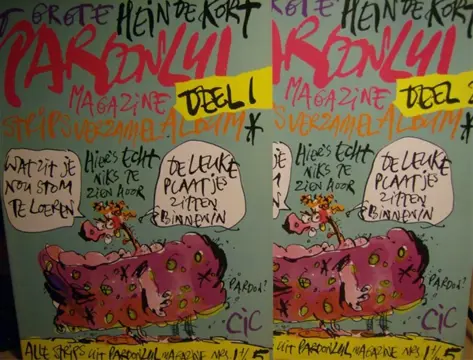 GROTE HEIN DE KORT
PARDON LUL
MAGAZINE DEEL 1
STRIPS VERZAMEL ALBUM *
WAT ZIT JE
NOU STOM
TE LOEREN
HIER'S ECHT
NIKS TE
ZIEN HOOR
DE LEUKE
PLAATJES
ZITTEN
BINNENIN
PARDON?
CIC
ALLE STRIPS UIT PARDON LUL MAGAZINE NRS 1 5
GROTE HEIN DE KORT
ARDON LUL
MAGAZINE DEEL
STRIPS VERZAMEL ALBUM *
HIER'S ECHT
NIKS TE
ZIEN HOOR
DE LEUKE
PLAATJES
ZITTEN
BINNENIN
PARDON?
CIC
STRIPS UIT PARDON LUL MAGAZINE NRS 1 5